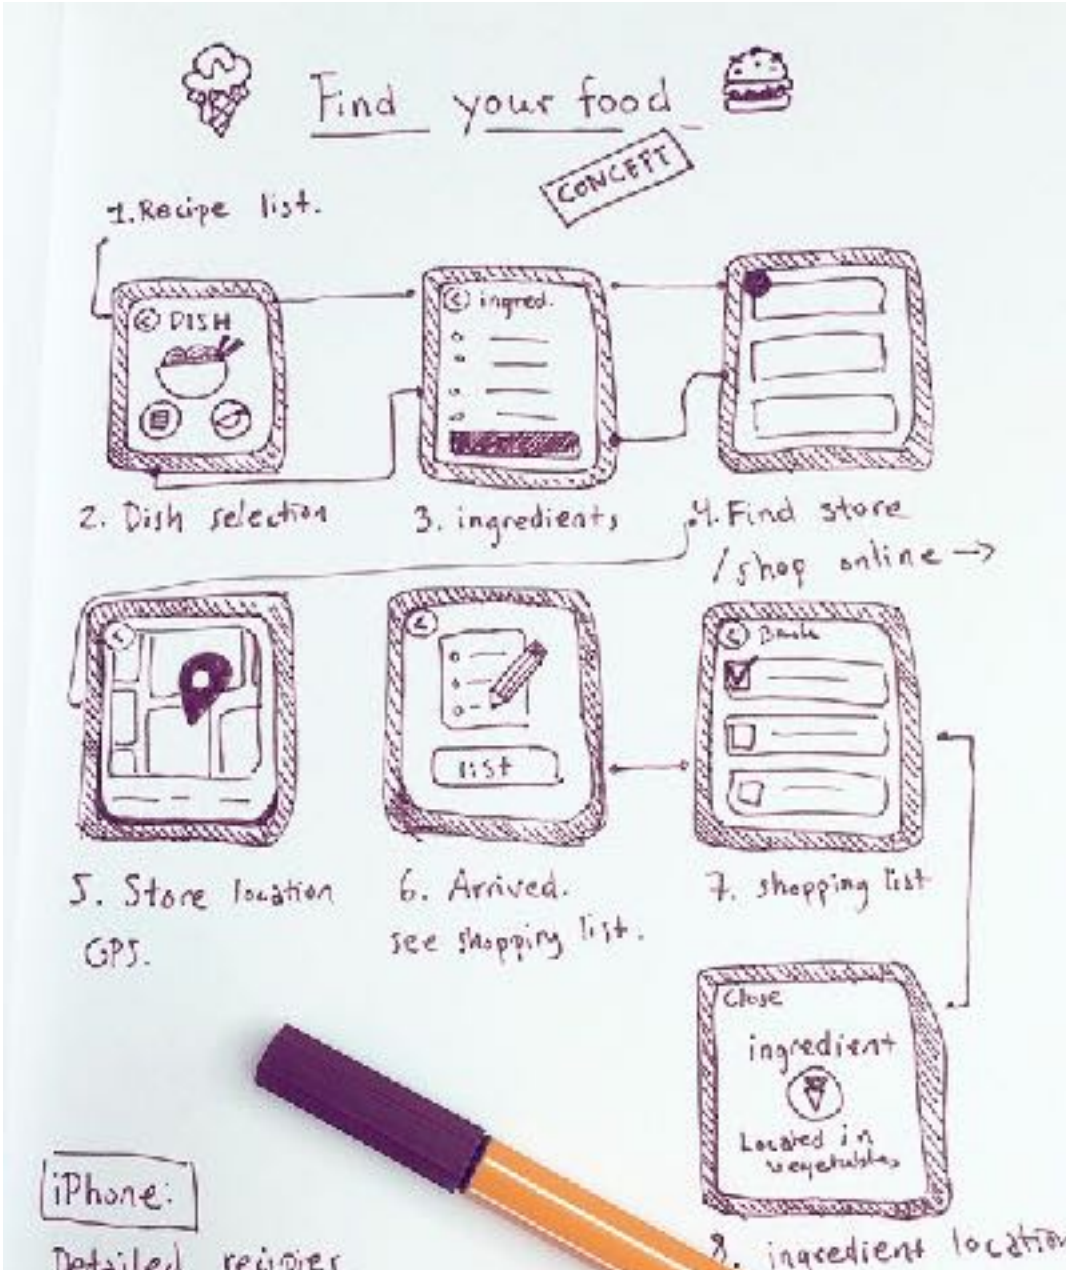 Find your food
CONCEPT
1. Recipe list.
DISH
ingred.
2. Dish selection
3. ingredients
4. Find store
/shop online →
Back
list
5. Store location
GPS.
6. Arrived.
see shopping list.
7. shopping list
Close
ingredient
Located in
vegetables
iPhone:
8. ingredient location
Detailed